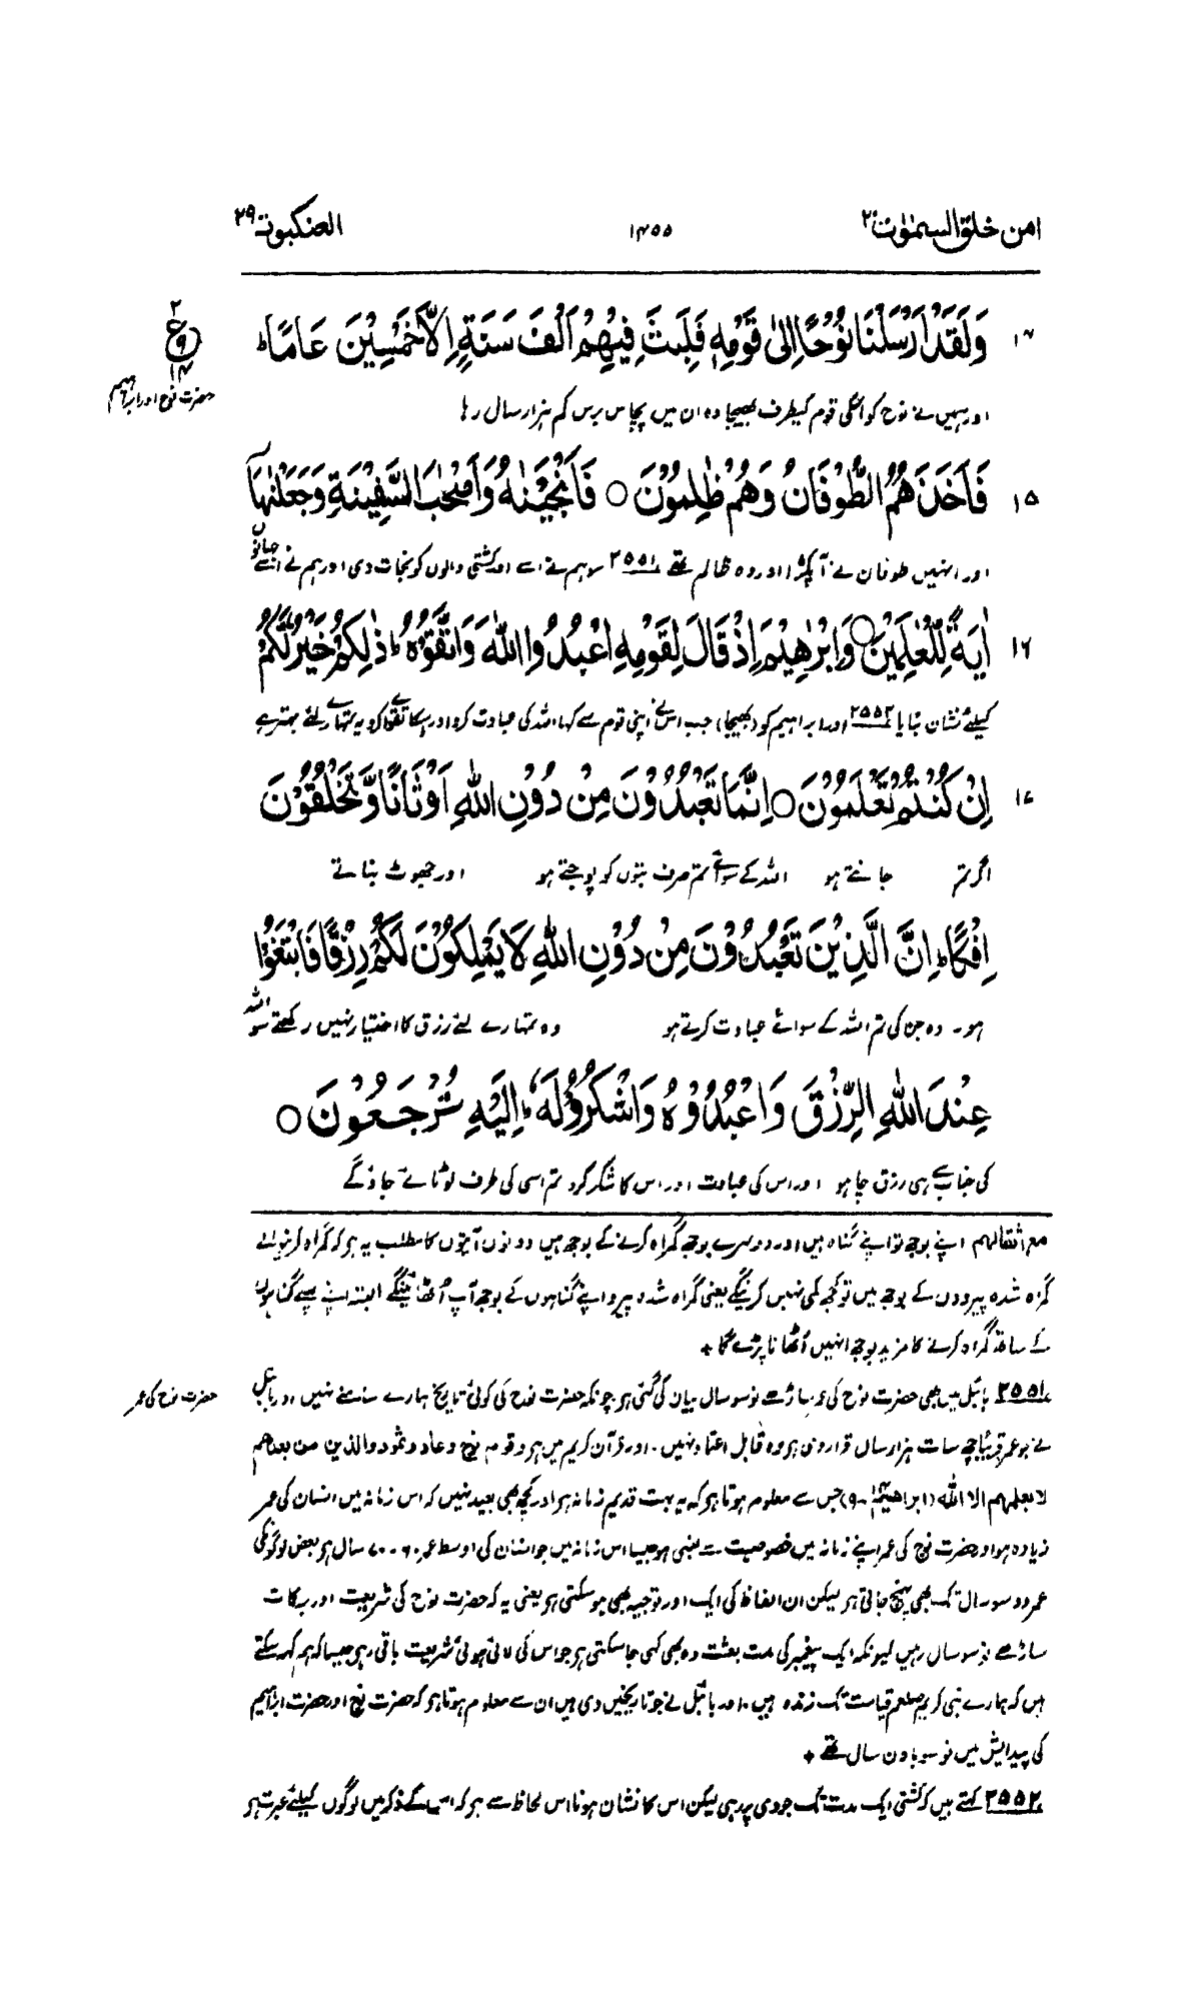 امن خلق السمٰوٰت ٢٠
١٤٥٥
العنكبوت ٢٩
١٤ وَلَقَدْ اَرْسَلْنَا نُوْحًا اِلٰى قَوْمِهٖ فَلَبِثَ فِيْهِمْ اَلْفَ سَنَةٍ اِلَّا خَمْسِيْنَ عَامًا ؕ
٢
ع
١٤
حضرت نوح اور ابراہیم
اور ہمیں نے نوح کو اسکی قوم کیطرف بھیجا وہ ان میں پچاس برس کم ہزار سال رہا
١٥ فَاَخَذَهُمُ الطُّوْفَانُ وَهُمْ ظٰلِمُوْنَ ○ فَاَنْجَيْنٰهُ وَاَصْحٰبَ السَّفِيْنَةِ وَجَعَلْنٰهَاۤ
اور انہیں طوفان نے آ پکڑا اور وہ ظالم تھے ٢٥٥١ سو ہم نے اسے اور کشتی والوں کو نجات دی اور ہم نے اسے جہانوں
١٦ اٰيَةً لِّلْعٰلَمِيْنَ ○ وَاِبْرٰهِيْمَ اِذْ قَالَ لِقَوْمِهِ اعْبُدُوا اللّٰهَ وَاتَّقُوْهُ ؕ ذٰلِكُمْ خَيْرٌ لَّكُمْ
کیلئے نشان بنایا ٢٥٥٢ اور ابراہیم کو (بھیجا) جب اس نے اپنی قوم سے کہا اللہ کی عبادت کرو اور اسکا تقویٰ کرو یہ تمہارے لئے بہتر ہے
١٧ اِنْ كُنْتُمْ تَعْلَمُوْنَ ○ اِنَّمَا تَعْبُدُوْنَ مِنْ دُوْنِ اللّٰهِ اَوْثَانًا وَّتَخْلُقُوْنَ
اگر تم جانتے ہو اللہ کے سوائے تم صرف بتوں کو پوجتے ہو اور جھوٹ بناتے
اِفْكًا ؕ اِنَّ الَّذِيْنَ تَعْبُدُوْنَ مِنْ دُوْنِ اللّٰهِ لَا يَمْلِكُوْنَ لَكُمْ رِزْقًا فَابْتَغُوْا
ہو۔ وہ جن کی تم اللہ کے سوائے عبادت کرتے ہو وہ تمہارے لئے رزق کا اختیار نہیں رکھتے سو اللہ
عِنْدَ اللّٰهِ الرِّزْقَ وَاعْبُدُوْهُ وَاشْكُرُوْا لَهٗ ؕ اِلَيْهِ تُرْجَعُوْنَ ○
کی جناب سے ہی رزق چاہو اور اس کی عبادت اور اس کا شکر کرو تم اسی کی طرف لوٹائے جاؤ گے
مع اثقالہم اپنے بوجھ تو اپنے گناہ ہیں اور دوسرے بوجھ گمراہ کرنے کے بوجھ ہیں دونوں آیتوں کا مطلب یہ ہے کہ گمراہ کرنیوالے
گمراہ شدہ پیرووں کے بوجھ میں تو کچھ کمی نہیں کرینگے یعنی گمراہ شدہ پیرو اپنے گناہوں کے بوجھ آپ اُٹھائینگے البتہ اپنے گناہوں
کے ساتھ گمراہ کرنے کا مزید بوجھ انہیں اُٹھانا پڑے گا +
٢٥٥١ بائبل میں بھی حضرت نوح کی عمر ساڑھے نو سو سال بیان کی گئی ہے چونکہ حضرت نوح کی کوئی تاریخ ہمارے سامنے نہیں اور بائبل
حضرت نوح کی عمر
نے جو عمر قریباً چھ سات ہزار سال قرار دی ہے وہ قابل اعتماد نہیں۔ اور قرآن کریم میں ہے وقوم نوح وعاد وثمود والذین من بعدھم
لا یعلمہم الا اللہ (ابراھیم ٩) جس سے معلوم ہوتا ہے کہ یہ بہت قدیم زمانہ ہے اور کچھ بھی بعید نہیں کہ اس زمانہ میں انسان کی عمر
زیادہ ہو اور حضرت نوح کی عمر اپنے زمانہ میں خصوصیت سے لمبی ہو جیسا اس زمانہ میں جو انسان کی اوسط عمر ٦٠۔٧٠ سال ہے بعض لوگوں کی
عمر دو سو سال تک بھی پہنچ جاتی ہے لیکن ان الفاظ کی ایک اور توجیہ بھی ہو سکتی ہے یعنی یہ کہ حضرت نوح کی شریعت اور برکات
ساڑھے نو سو سال رہیں کیونکہ ایک پیغمبر کی مدت بعثت وہ بھی کہی جا سکتی ہے جو اس کی لائی ہوئی شریعت باقی رہی جیسا کہ ہم کہہ سکتے
ہیں کہ ہمارے نبی کریم صلعم قیامت تک زندہ ہیں۔ اور بائبل نے جو تاریخیں دی ہیں ان سے معلوم ہوتا ہے کہ حضرت نوح اور حضرت ابراہیم
کی پیدایش میں نو سو باون سال تھے +
٢٥٥٢ کہتے ہیں کہ کشتی ایک مدت تک جودی پر رہی لیکن اس کا نشان ہونا اس لحاظ سے ہے کہ اس کے ذکر میں لوگوں کیلئے عبرت ہے